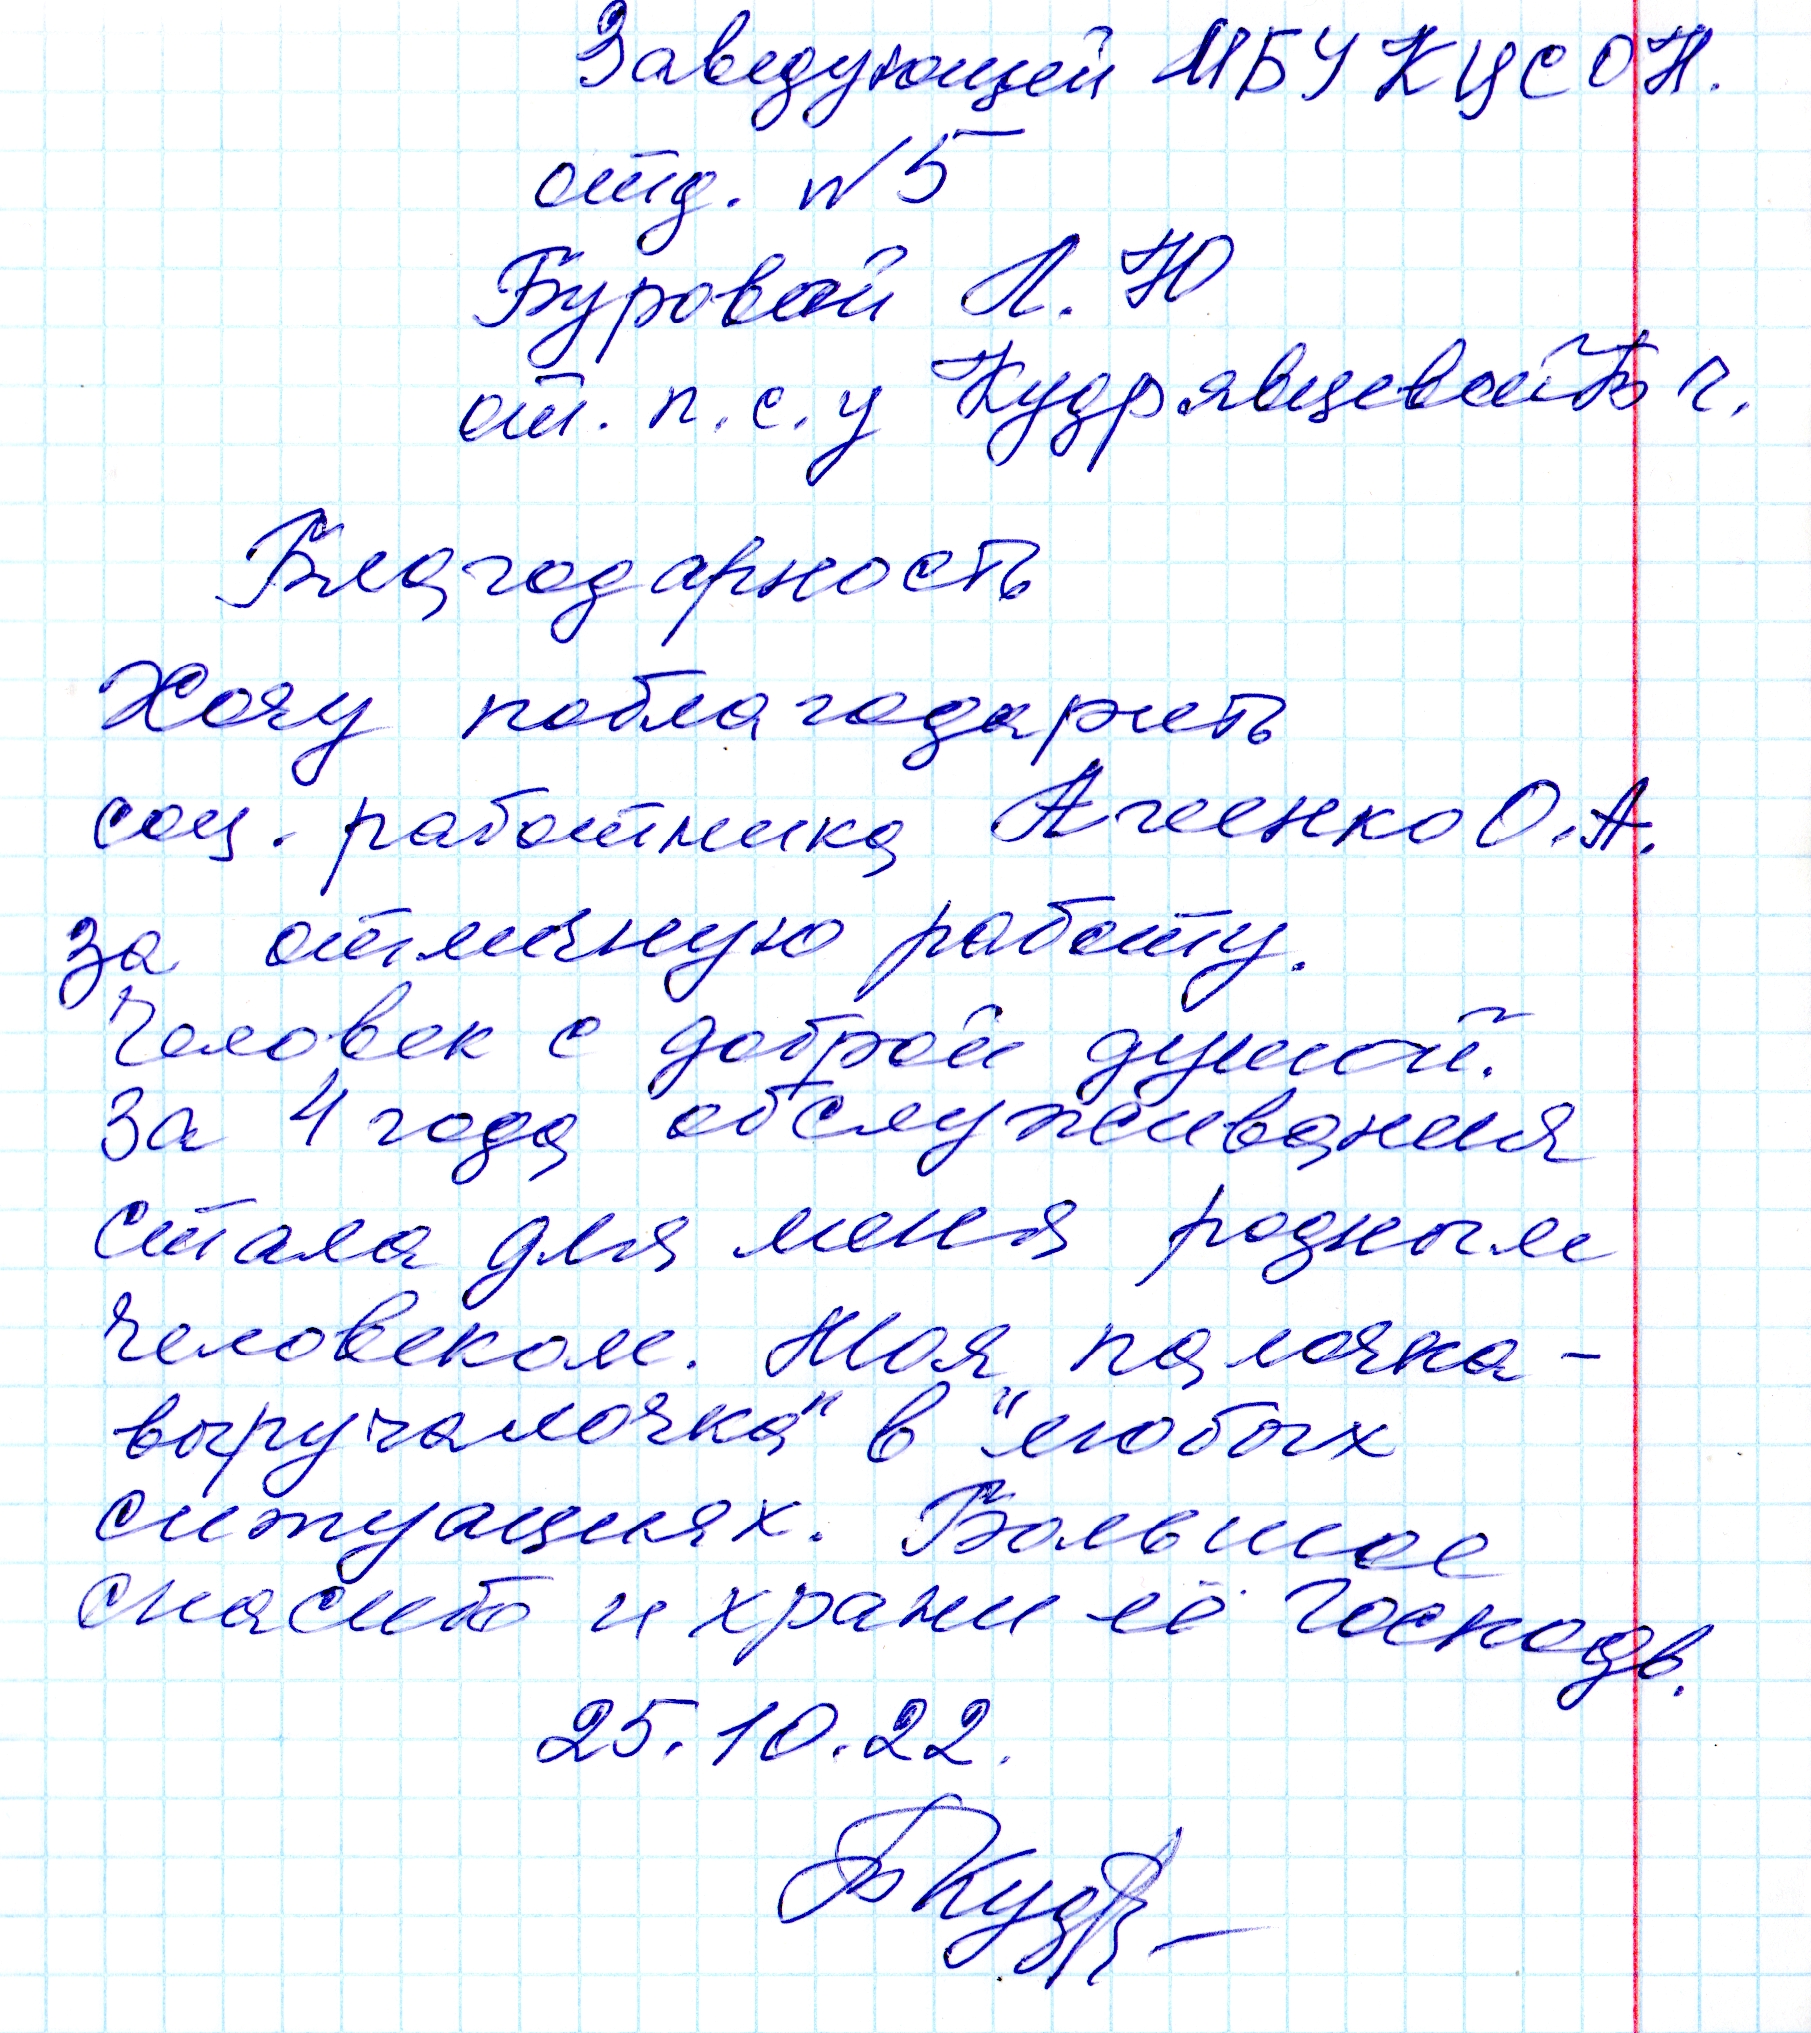 Заведующей МБУ КЦСОН.
отд. №5
Буровой Л. Ю
от. п. с. у Кудрявцевой Б г.
Благодарность
Хочу поблагодарить
соц. работника Агиенко О. А.
за отличную работу.
Человек с доброй душой.
За 4 года обслуживания
стала для меня родным
человеком. Моя палочка -
выручалочка" в "любых
ситуациях. Большое
спасибо и храни её Господь.
25.10.22.
БКудр